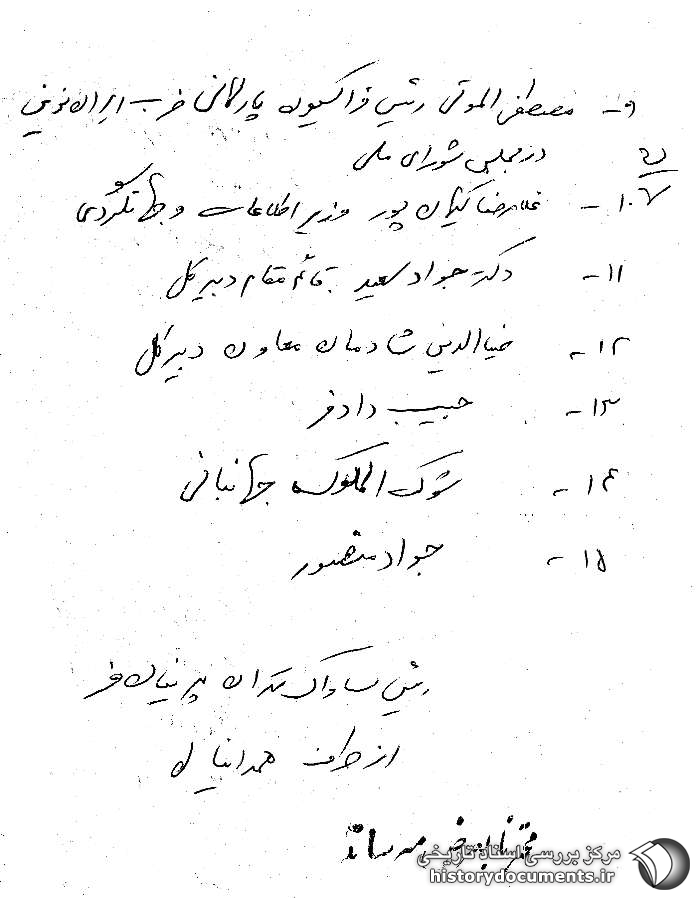 ۹- مصطفی الموتی رئیس فراکسیون پارلمانی حزب ایران نوین
در مجلس شورای ملی
۱۰- غلامرضا کیان پور وزیر اطلاعات و جهانگردی
۱۱- دکتر جواد سعید قائم مقام دبیرکل
۱۲- ضیاالدین شادمان معاون دبیرکل
۱۳- حبیب دادفر
۱۴- شوکت الملوک جهانبانی
۱۵- جواد منصور
رئیس ساواک تهران پرنیان فر
از طرف همدانیان
محترما بعرض میرساند
مرکز بررسی اسناد تاریخی
historydocuments.ir